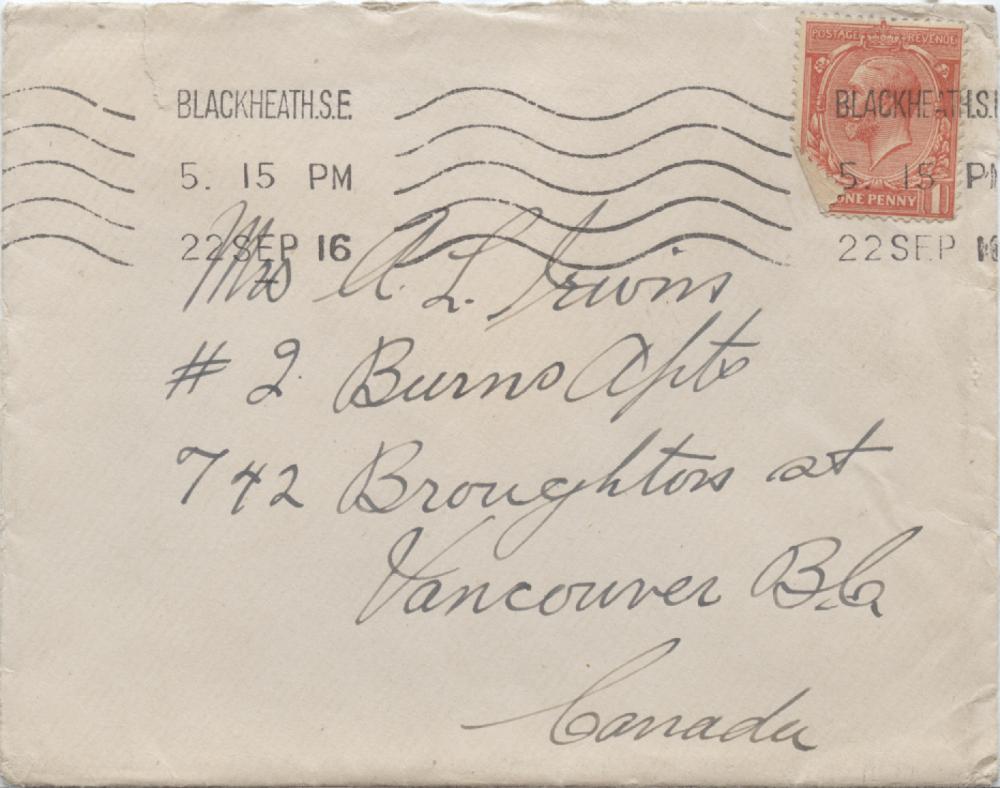 POSTAGE REVENUE
BLACKHEATH.S.E. BLACKHEATH.S.E
5. 15 PM 5. 15 PM
ONE PENNY 1
22 SEP 16 22 SEP 16
Mrs A. L. Irwin
# 2 Burns Apts
742 Broughton st
Vancouver B.C.
Canada